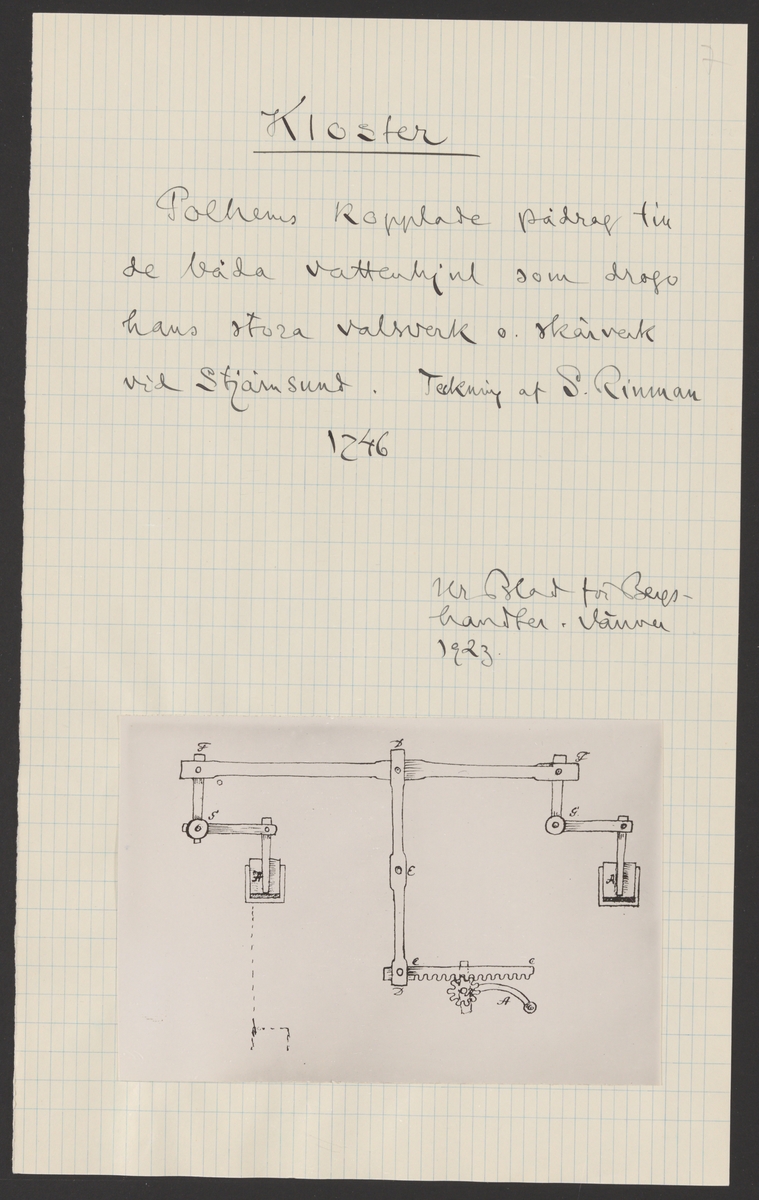 7
Kloster
Polhems kopplade pådrag till
de båda vattenhjul som drogo
hans stora valsverk o. skärverk
vid Stjärnsund. Teckning af S. Rinman
1746
Ur Blad för Bergs-
handter. Vänner
1923.
F D F
G G
H E A
C C
D A